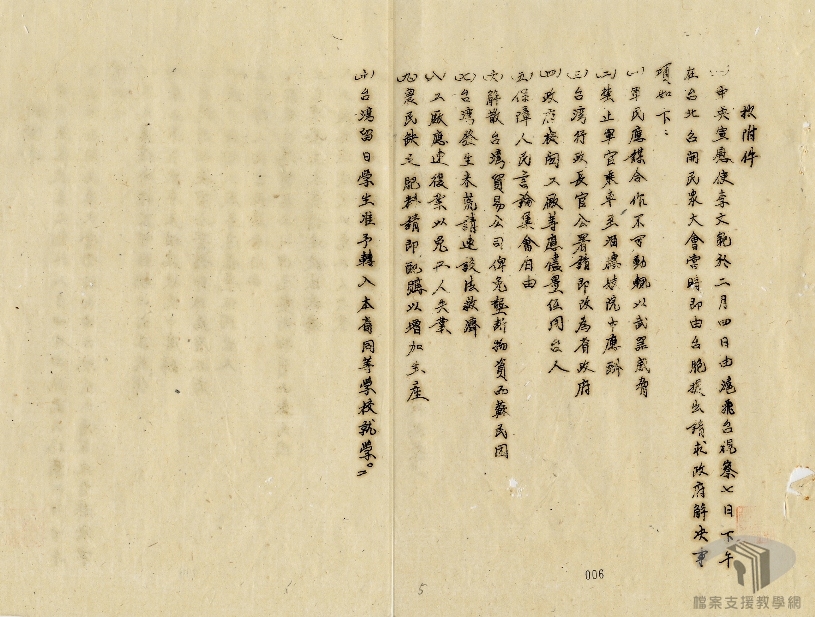 抄附件
(一)中央宣慰使李文範於二月四日由滬飛台視察七日下午
在台北召開民眾大會當時即由台胞提出請求政府解決事
項如下:
(一)軍民應謀合作不可動輒以武器威脅
(二)禁止軍官乘車至酒樓妓院中應酬
(三)台灣行政長官公署請即改為省政府
(四)政府機關工廠等應儘量任用台人
(五)保障人民言論集會自由
(六)解散台灣貿易公司俾免壟斷物資而蘇民困
(七)台灣發生米荒請速設法救濟
(八)工廠應速復業以免工人失業
(九)農民缺乏肥料請即配購以增加生產
(十)台灣留日學生准予轉入本省同等學校就學。」
006
5
檔案支援教學網